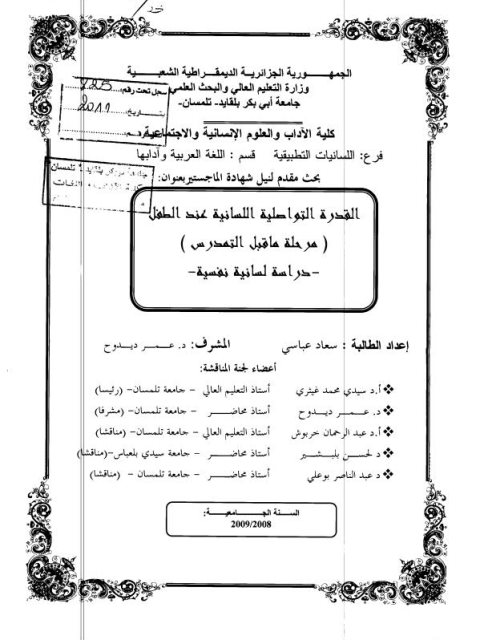 الجمهورية الجزائرية الديمقراطية الشعبية
وزارة التعليم العالي والبحث العلمي
جامعة أبي بكر بلقايد- تلمسان-
سجل تحت رقم: 825
2011 بتاريخ:
كلية الآداب والعلوم الإنسانية والاجتماعية
فرع: اللسانيات التطبيقية قسم : اللغة العربية وآدابها
بحث مقدم لنيل شهادة الماجستير بعنوان:
القدرة التواصلية اللسانية عند الطفل
( مرحلة ماقبل التمدرس )
-دراسة لسانية نفسية-
إعداد الطالبة : سعاد عباسي المشرف: د. عمر ديدوح
أعضاء لجنة المناقشة:
❖ أ.د سيدي محمد غيثري أستاذ التعليم العالي - جامعة تلمسان- (رئيسا)
❖ د. عمر ديدوح أستاذ محاضر - جامعة تلمسان- (مشرفا)
❖ أ.د عبد الرحمان خربوش أستاذ التعليم العالي - جامعة تلمسان- (مناقشا)
❖ د لحسن بلبشير أستاذ محاضر - جامعة سيدي بلعباس- (مناقشا)
❖ د عبد الناصر بوعلي أستاذ محاضر - جامعة تلمسان - (مناقشا)
السنة الجامعية:
2009/2008